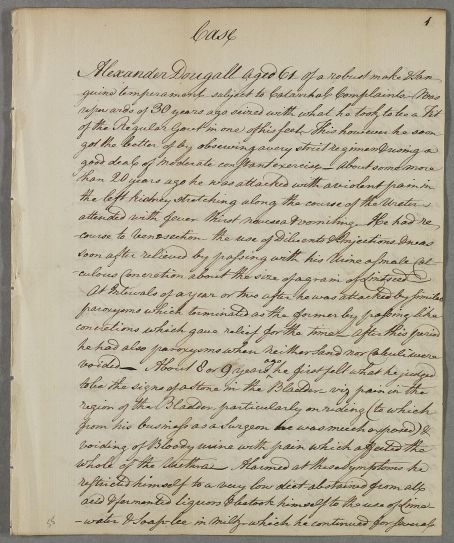 1
Case
Alexander Dougall aged 61 of a robust make & San-
guine temperament subject to Catarrhal Complaints Was
upwards of 30 years ago seized with what he took to be a Fit
of the Regular Gout in one of his feet This however he soon
got the better of by observing a very strict regimen & using a
good deal of moderate constant exercise — About some more
than 20 years ago he was attacked with a violent pain in
the left kidney stretching along the course of the Ureter
attended with fever thirst nausea & vomiting — He had re-
course to Venesection the use of Diluents & Injections & was
soon after relieved by passing with his Urine a small Cal
culous Concretion about the size of a grain of Lintseed —
At Intervals of a year or two after he was attacked by similar
paroxysms which terminated as the former by passing like
concretions which gave relief for the time — After this period
he had also paroxysms when neither Sand nor Calculi were
voided — About 8 or 9 years ago he first felt what he judged
to be the signs of a stone in the Bladder viz pain in the
region of the Bladder particularly on riding (to which
from his business as a Surgeon he was much exposed) &
voiding of Bloody urine with pain which affected the
whole of the Urethra — Alarmed at these symptoms he
restricted himself to a very low diet abstained from all
acid & fermented liquors & betook himself to the use of Lime
-water & Soap lee in Milk which he continued for several